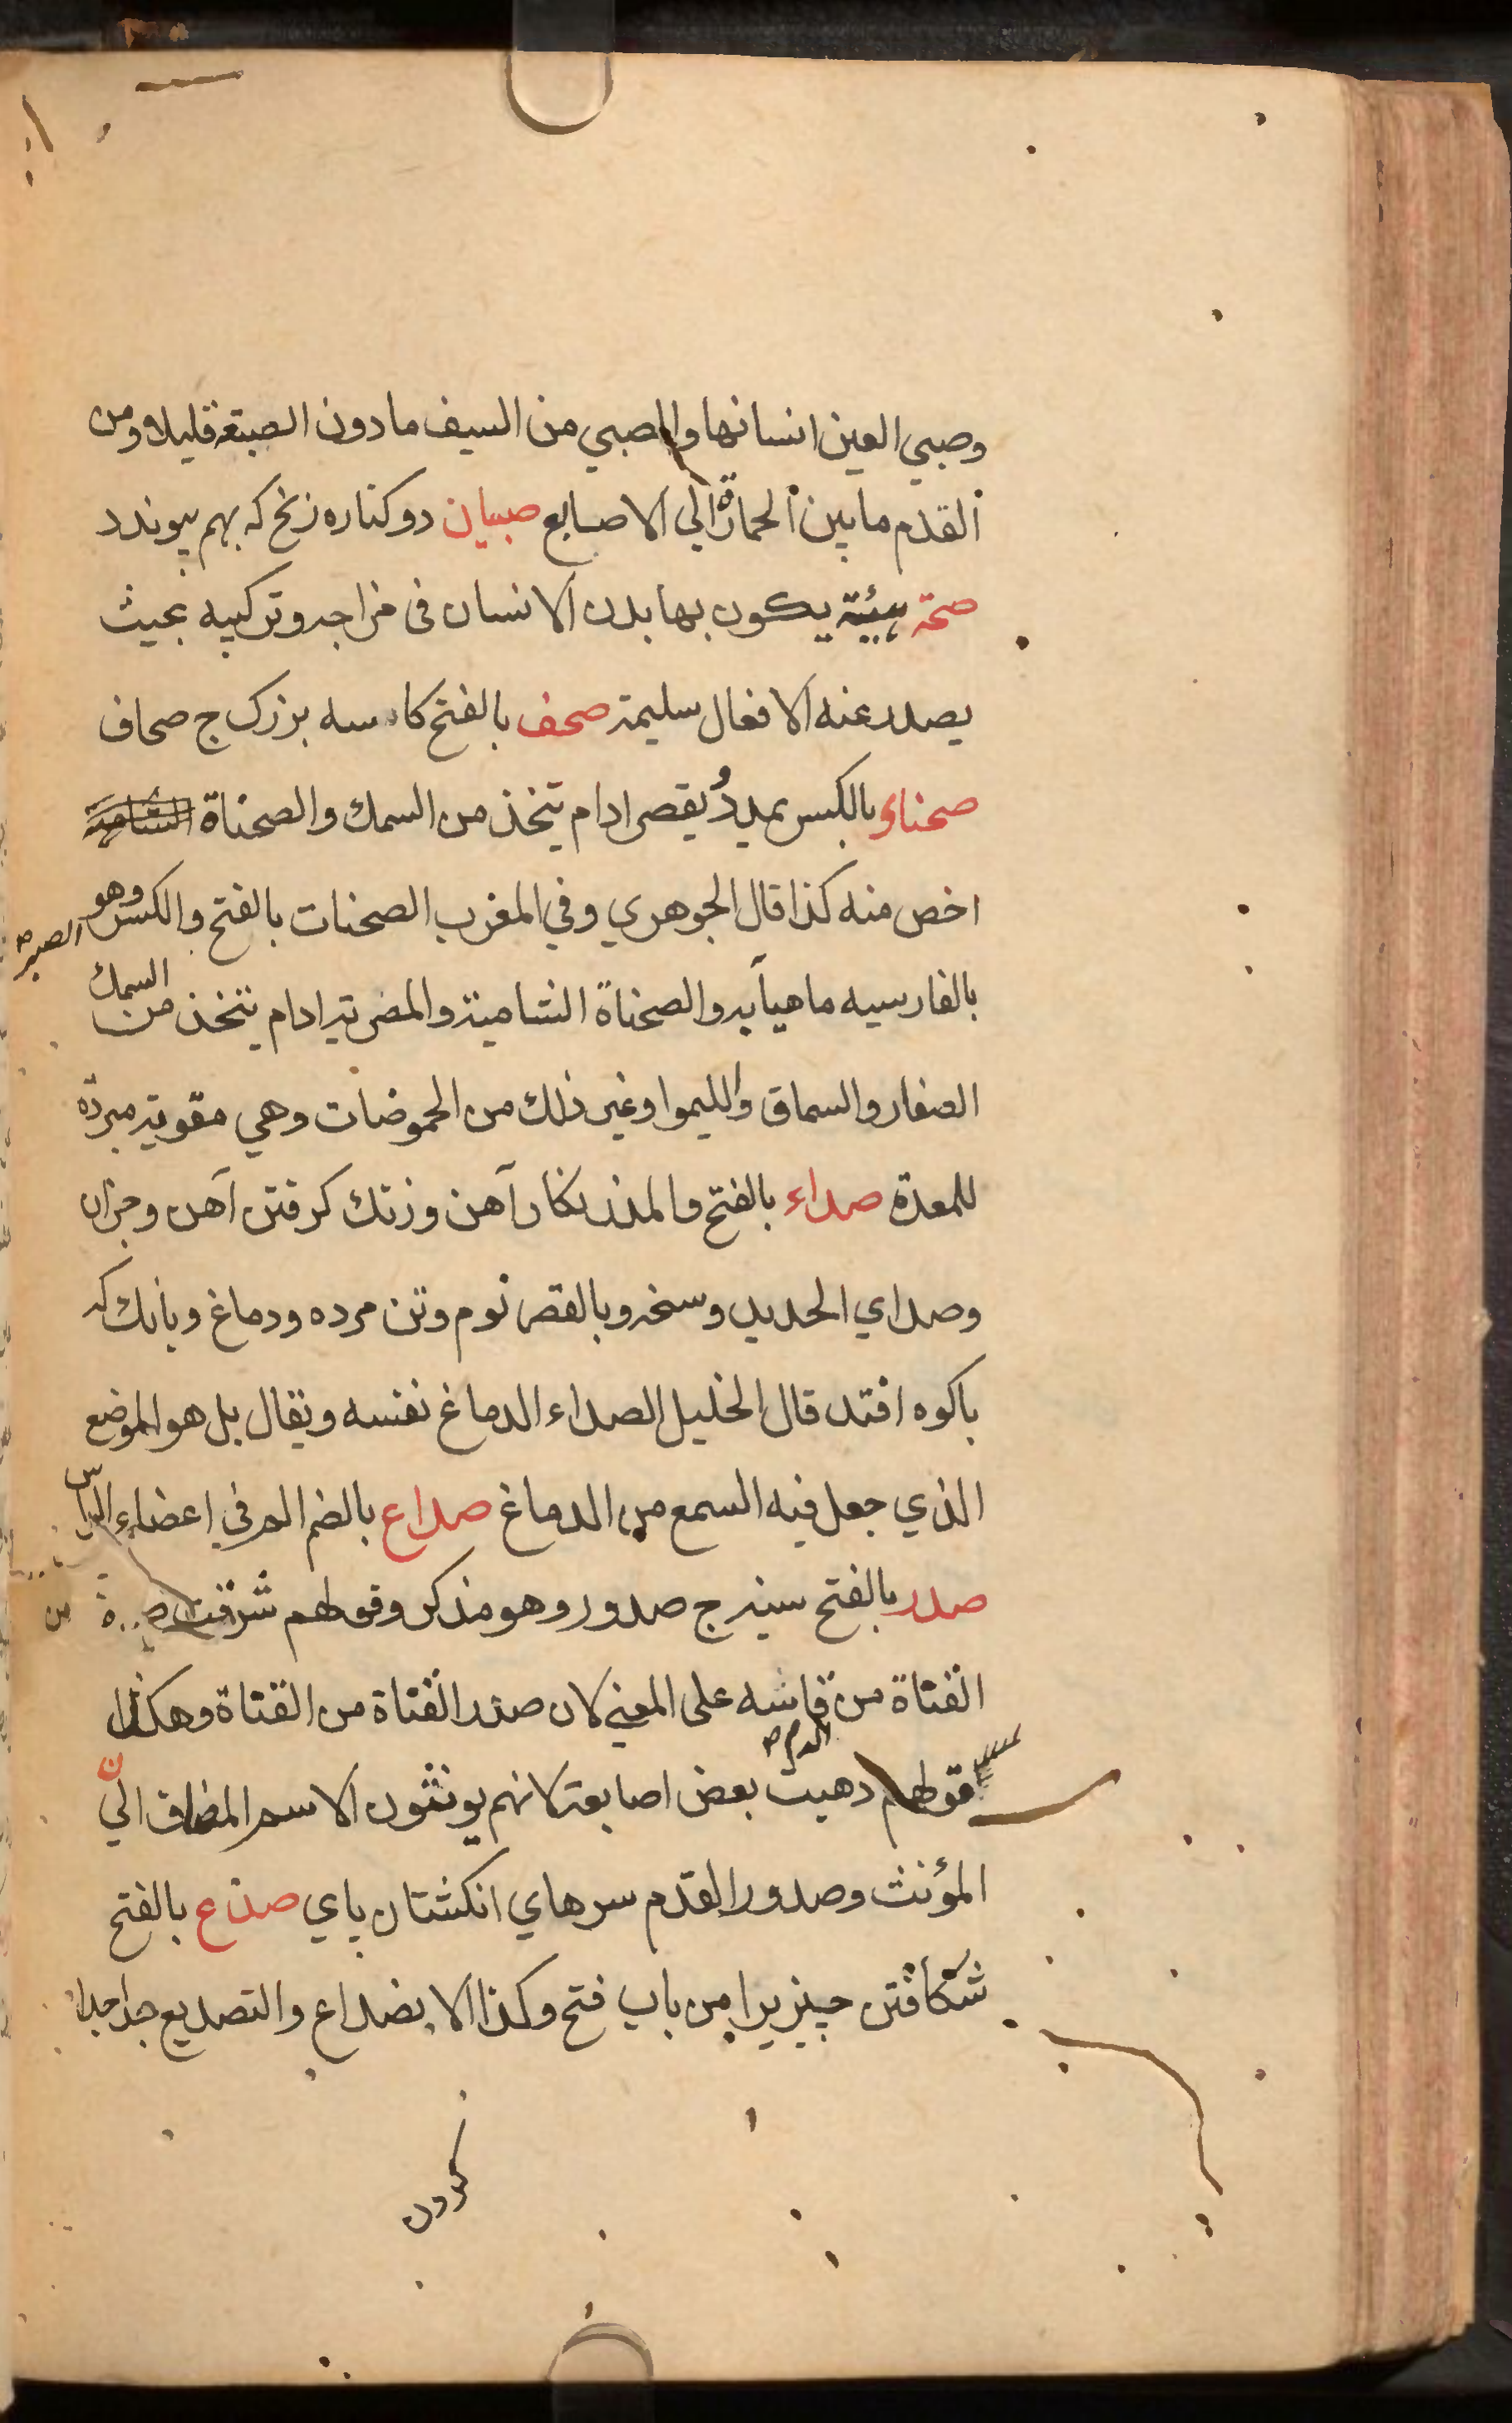 وصبي العين انسانها والصبي من السيف مادون الصبتة قليلا ومن
القدم مابين الحمارة الي الاصابع صبيان دو كناره زنخ كه بهم پيوندد
صحة هيئة يكون بها بدن الانسان فى مزاجه وتركيبه بحيث
يصدر عنه الافعال سليمة صحف بالفتح كاسه بزرك ج صحاف
صحناء بالكسر يمد ويقصر ادام يتخذ من السمك والصحناة الشامية
اخص منه كذا قال الجوهري وفي المغرب الصحنات بالفتح والكسر وهو الصير
بالفارسيه ماهيآبه والصحناة الشامية والمضرية ادام يتخذ من السمك
الصغار والسماق والليموا وغير ذلك من الحموضات وهي مقوية مبردة
للمعدة صداء بالفتح والمد زنكار آهن وزنك كرفتن آهن وجزان
وصداي الحديد وسخه وبالقصر نوم وتن مرده ودماغ وبانك كه
باكوه افتد قال الخليل الصداء الدماغ نفسه ويقال بل هو الموضع
الذي جعل فيه السمع من الدماغ صداع بالضم الم في اعضاء الراس
صدر بالفتح سينه ج صدور وهو مذكر وقولهم شرقت من
القناة من قاشه على المعني لان صدر القناة من القناة وهكذا
قولهم ذهبت بعض اصابعه لانهم يونثون الاسم المضاف الي
المؤنث وصدور القدم سرهاي انكشتان پاي صدع بالفتح
شكافتن چيزيرا من باب فتح وكذا الا يضداع والتصديع جدا جدا
كردن